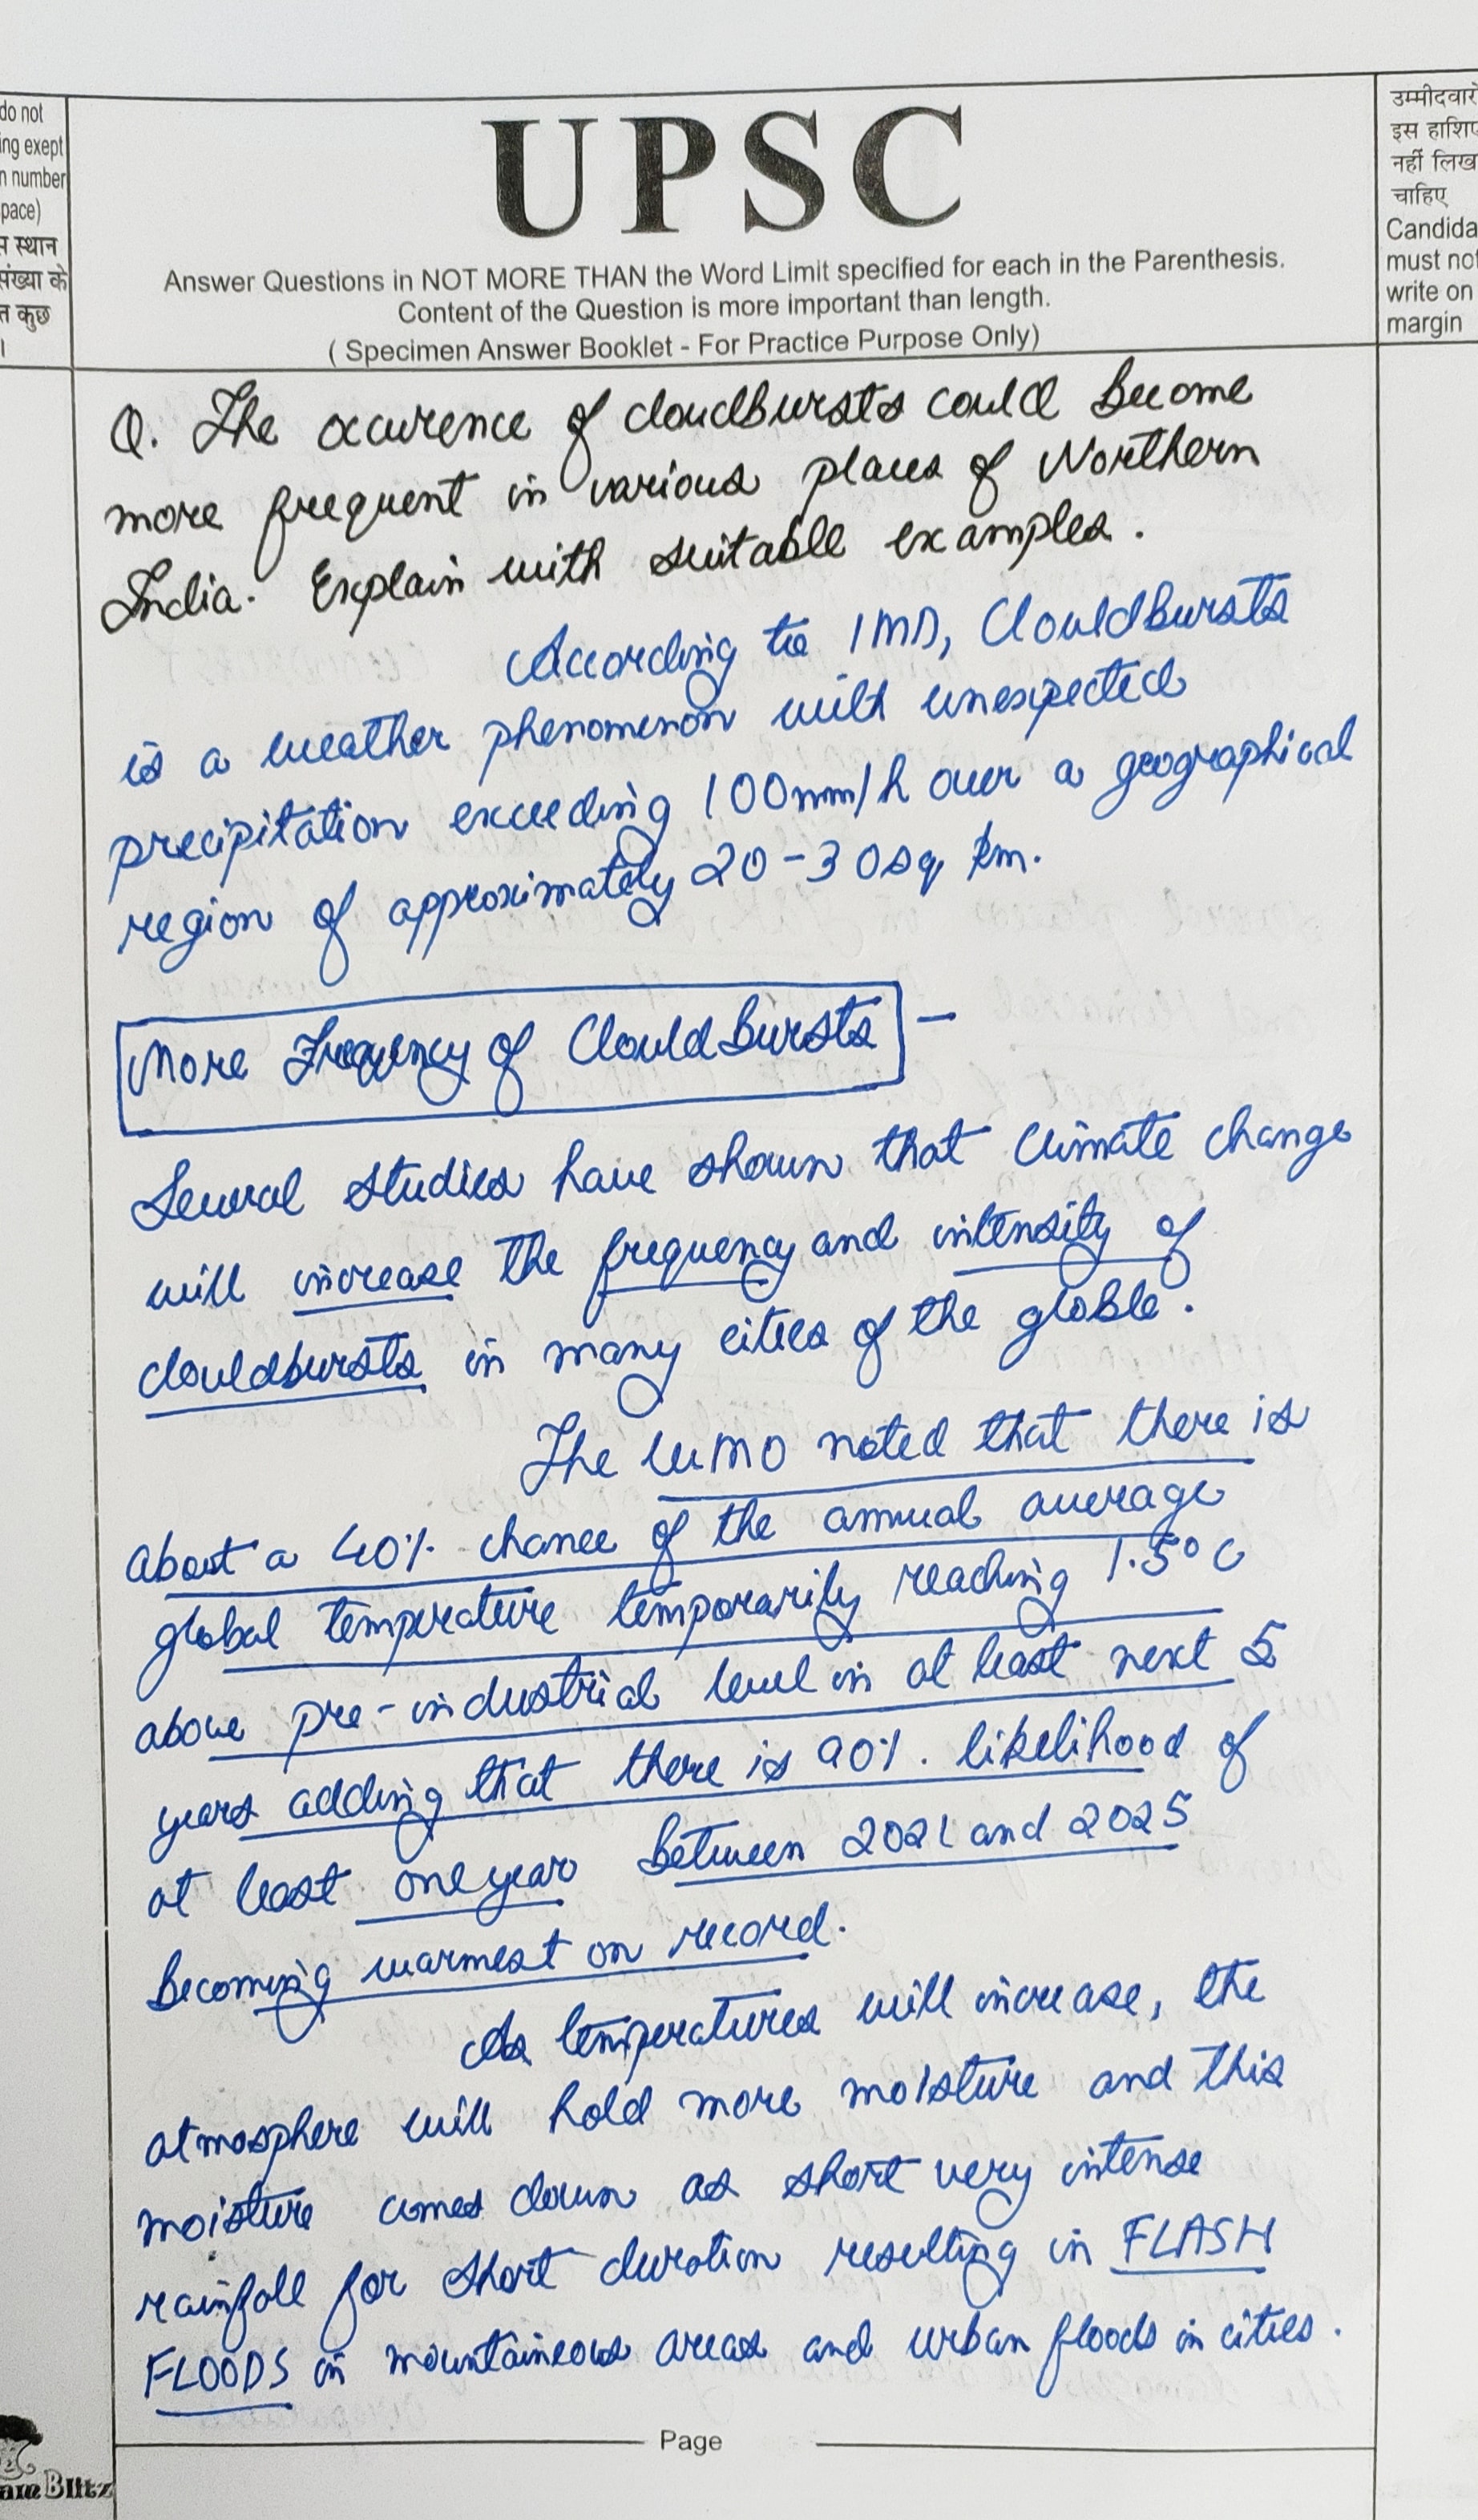 do not
ing exept
n number
pace)
स्थान
संख्या के
कुछ
।
UPSC
Answer Questions in NOT MORE THAN the Word Limit specified for each in the Parenthesis.
Content of the Question is more important than length.
( Specimen Answer Booklet - For Practice Purpose Only)
उम्मीदवारों
इस हाशिए
नहीं लिख
चाहिए
Candida
must not
write on
margin
Q. The occurence of cloudbursts could become
more frequent in various places of Northern
India. Explain with suitable examples.
According to IMD, Clouldbursts
is a weather phenomenon with unexpected
precipitation exceeding 100mm/h over a geographical
region of approximately 20-30sq km.
More Frequency of Clouldbursts -
Several studies have shown that climate change
will increase the frequency and intensity of
clouldbursts in many cities of the globle.
The WMO noted that there is
about a 40% chance of the annual average
global temperature temporarily reaching 1.5°C
above pre-industrial level in at least next 5
years adding that there is 90% likelihood of
at least one year between 2021 and 2025
becoming warmest on record.
As temperatures will increase, the
atmosphere will hold more moisture and this
moisture comes down as short very intense
rainfall for short duration resulting in FLASH
FLOODS in mountaineous areas and urban floods in cities.
Page
am Blitz